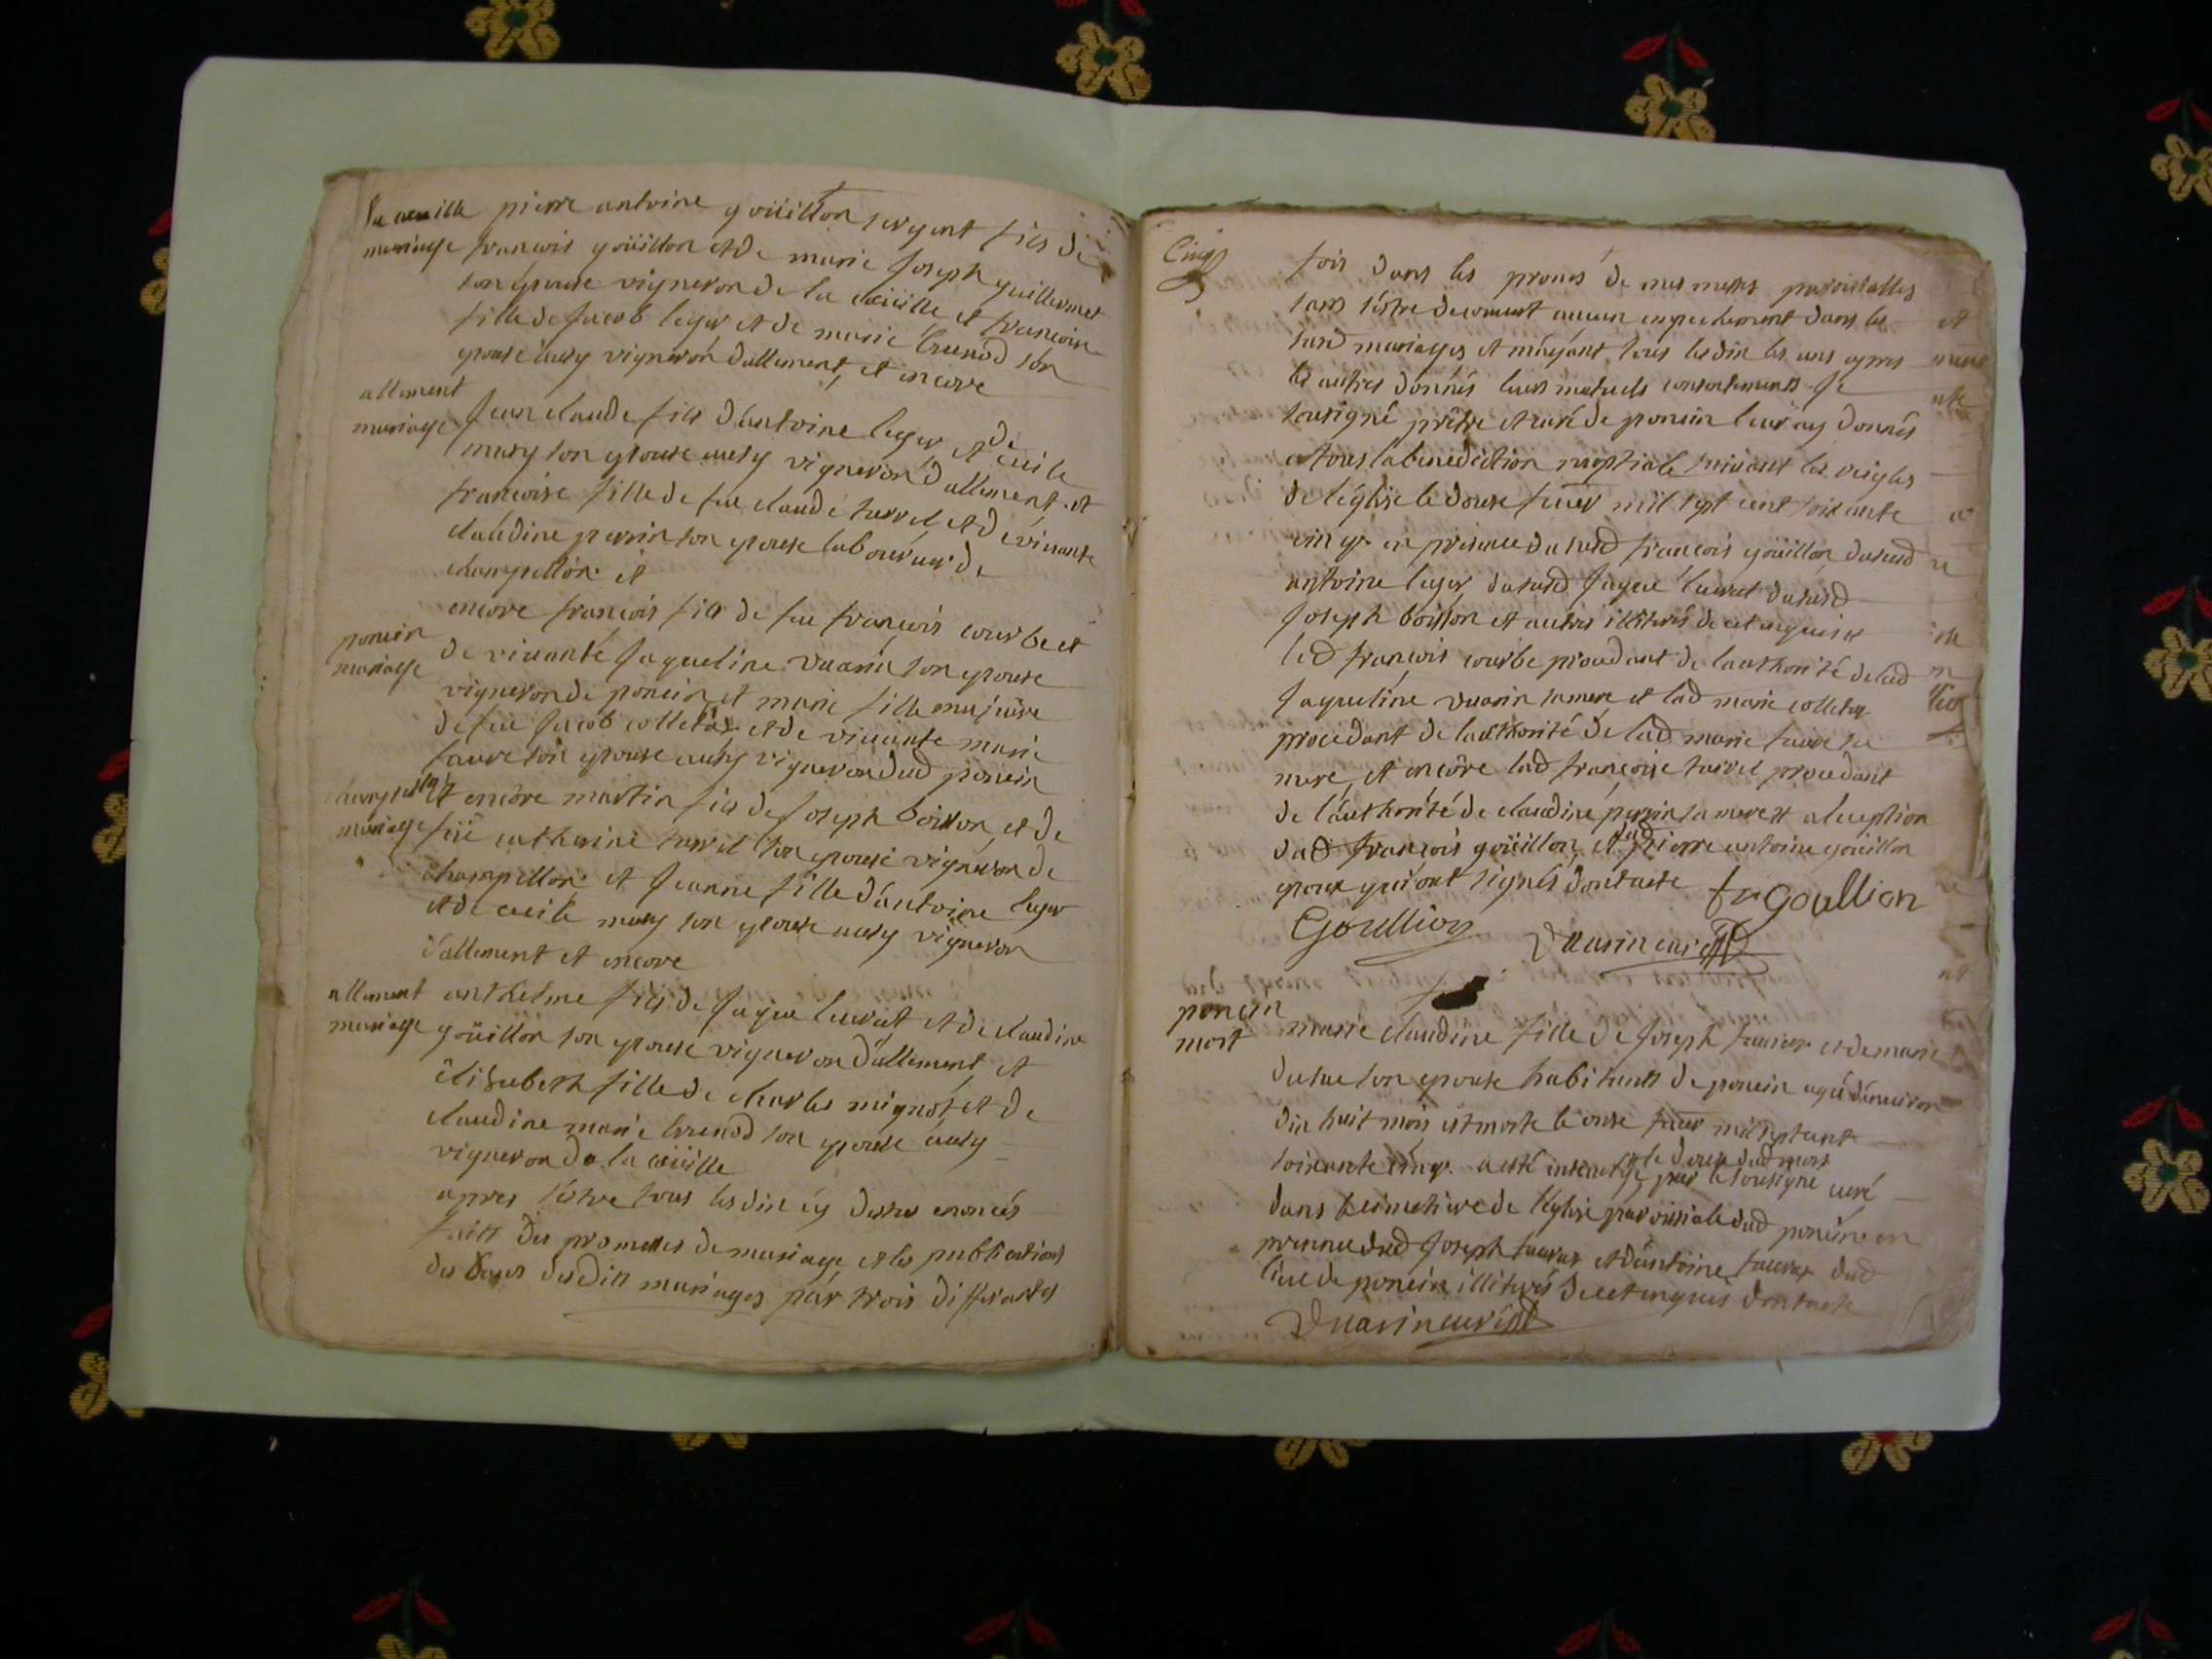 la cueille pierre antoine goüillon sergent fils de
mariage francois goüillon et de marie Joseph guillermet
son épouse vigneron de la cüeille et francoise
fille de Jacob leger et de marie brunod son
epouse aussy vigneron dallement, et encore
allement
mariage Jean claude fils d'antoine leger et de cecile
mury son epouse aussy vigneron dallement et
francoise fille de feu claude turrel et de vivante
claudine perrin son epouse laboureur de
champillon et
encore francois fils de feu francois courbe et
poncin
mariage de vivante Jaqueline vuarin son epouse
vigneron de poncin et marie fille majeure
de feu Jacob colletaz et de vivante marie
faure son epouse aussy vigneron dud poncin
champillon et encore martin fils de Joseph boisson et de
mariage füe catherine turrel son epouse vigneron de
champillon et Jeanne fille d'antoine leger
et de cecile mury son epouse aussy vigneron
d'allement et encore
allement anthelme fils de Jaque levrat et de claudine
mariage goüillon son epouse vigneron d'allement, et
elisabeth fille de charles mignot et de
claudine marie brunod son epouse aussy
vigneron de la cüeille
apres s'estre tous les dix cy dessus enoncés
faits des promesses de mariage et les publications
des bans desdits mariages par trois differentes
Cinq
fois dans les prones de mes messes paroissialles
sans s'estre decouvert aucun empechement dans les
susd mariages et m'ayant tous les dix les uns apres
les autres donnés leurs mutuels consentements Je
sousigné prêtre et curé de poncin leur ay donnés
a tous la benediction nuptiale suivant les reigles
de l'église le douze fevier mil sept cent soixante
cinq. en presence du susd francois goüillon, du susd
antoine leger, du susd Jaque levrat du susd
Joseph boisson et autres illiterés de ce enquis et
led francois courbe procedant de l'authorité de lad
Jaqueline vuarin sa mere et lad marie colletaz
procedant de lauthorité de lad marie faure sa
mere, et encôre lad françoise turrel procedant
de l'authorité de claudine perrin sa mere et a lexeption
dud francois goüillon, et dud pierre antoine goüillon
epoux qui ont signés dont acte fr goullion
Goullion
Vuarin curé
poncin
mort marie claudine fille de Joseph favier et de marie
dusue son epouse habitants de poncin agée d'environ
dix huit mois est morte le onze fevier mil sept cent
soixante cinq. a esté inhumée le douze dud mois par le sousigné curé
dans le cimetiere de l'église paroissiale dud poncin en
presence dud Joseph favier et d'antoine favier dud
lieu de poncin illiterés de ce enquis dont acte
Vuarin curé